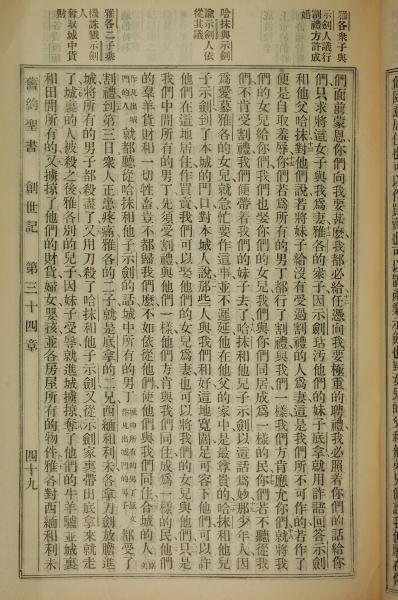 雅各衆子與
示劍人議行
割禮方許成
婚
哈抹與示劍
諭示劍人依
從其議
雅各二子乘
機誅戮示劍
人
奪取城中貨
財
們面前蒙恩你們向我要甚麽我都必給任憑向我要極重的聘禮我必照着你們的話給你
們只求將這女子與我爲妻雅各的衆子因示劍玷汚他們的妹子底拿就用詐語回答示劍
和他父哈抹對他們說若將妹子給沒有受過割禮的人爲妻這是我們所不可作的若作了
便是自取羞辱你們若爲所有的男丁都行了割禮與我們一樣我們方肯應允你們就將我
們的女兒給你們我們也娶你們的女兒我們與你們同居成爲一樣的民你們若不聽從我
們不肯受割禮我們便帶着我們的妹子去了哈抹和他兒子示劍以這話爲妙那少年人因
爲愛慕雅各的女兒就急忙要作這事並不遲延他在他父的家中是最尊貴的哈抹和他兒
子示劍到了本城的門口對本城人說那些人與我們和好這地寬闊足可容下他們可以許
他們在這地居住作買賣我們可以娶他們的女兒爲妻也可以將我們的女兒與他們只是
我們中間所有的男丁先須受割禮與他們一樣他們方肯與我們同住成爲一樣的民他們
的羣羊貨財和一切牲畜豈不都歸我們麽不如依從他們使他們與我們同住合城的人原文
作凡出城門的人就都聽從哈抹和他子示劍的話城中所有的男丁城中所有的男丁原文作凡出城門的男子都受了
割禮到第三日衆人正患疼痛雅各的二子就是底拿的二兄西緬和利未各拿刀劍放膽進
城將所有的男子都殺盡了又用刀殺了哈抹和他子示劍又從示劍家裏帶出底拿來就走
了城裏的人被殺之後雅各別的兒子因妹子受辱就進城擄掠奪了他們的牛羊驢並城裏
和田間所有的又擄掠了他們的財貨婦女嬰孩並各房屋所有的物件雅各對西緬和利未
舊約聖書 創世記 第三十四章 四十九